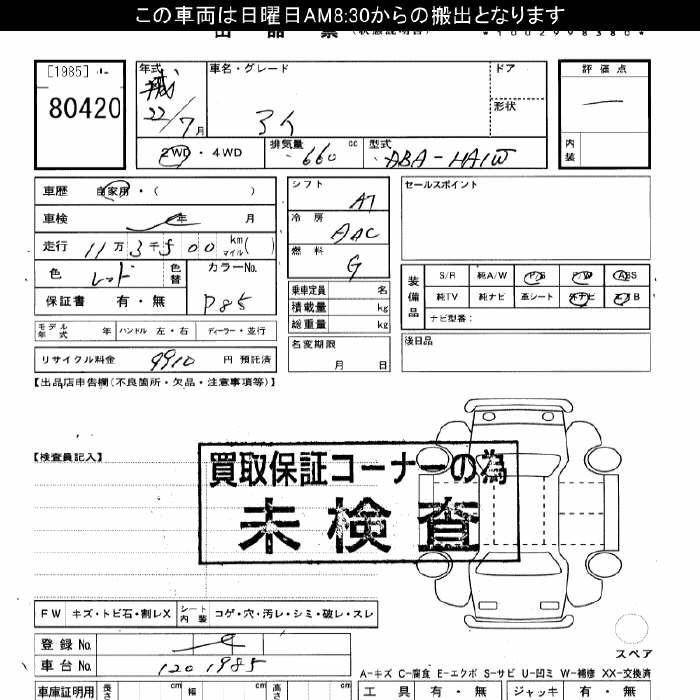 この車両は日曜日AM8:30からの搬出となります
出品票 (状態説明書) *1002998380*
[1985] ﾙｰ
80420
年式 平成 22/7月
車名・グレード
アイ
ドア
形状
評価点
—
内装
2WD・4WD
排気量 660 cc
型式 ABA-HA1W
車歴 自家用・( )
車検 年 月
走行 11万3千500 km マイル( )
色 レッド 色替
カラーNo. P85
保証書 有・無
シフト AT
冷房 AAC
燃料 G
セールスポイント
乗車定員 名
積載量 kg
総重量 kg
名変期限 月 日
装備品
S/R 純A/W P/S P/W ABS
純TV 純ナビ 革シート 外ナビ エアB
ナビ型番:
後日品
モデル年式 年 ハンドル 左・右 ディーラー・並行
リサイクル料金 9910 円 預託済
【出品店申告欄(不良箇所・欠品・注意事項等)】
【検査員記入】
買取保証コーナーの為
未検査
FW キズ・トビ石・割レX シート内装 コゲ・穴・汚レ・シミ・破レ・スレ
登録No.
車台No. 1201985
スペア
A-キズ C-腐食 E-エクボ S-サビ U-凹ミ W-補修 XX-交換済
車庫証明用 長さ cm 幅 cm 高さ cm
工具 有・無 ジャッキ 有・無